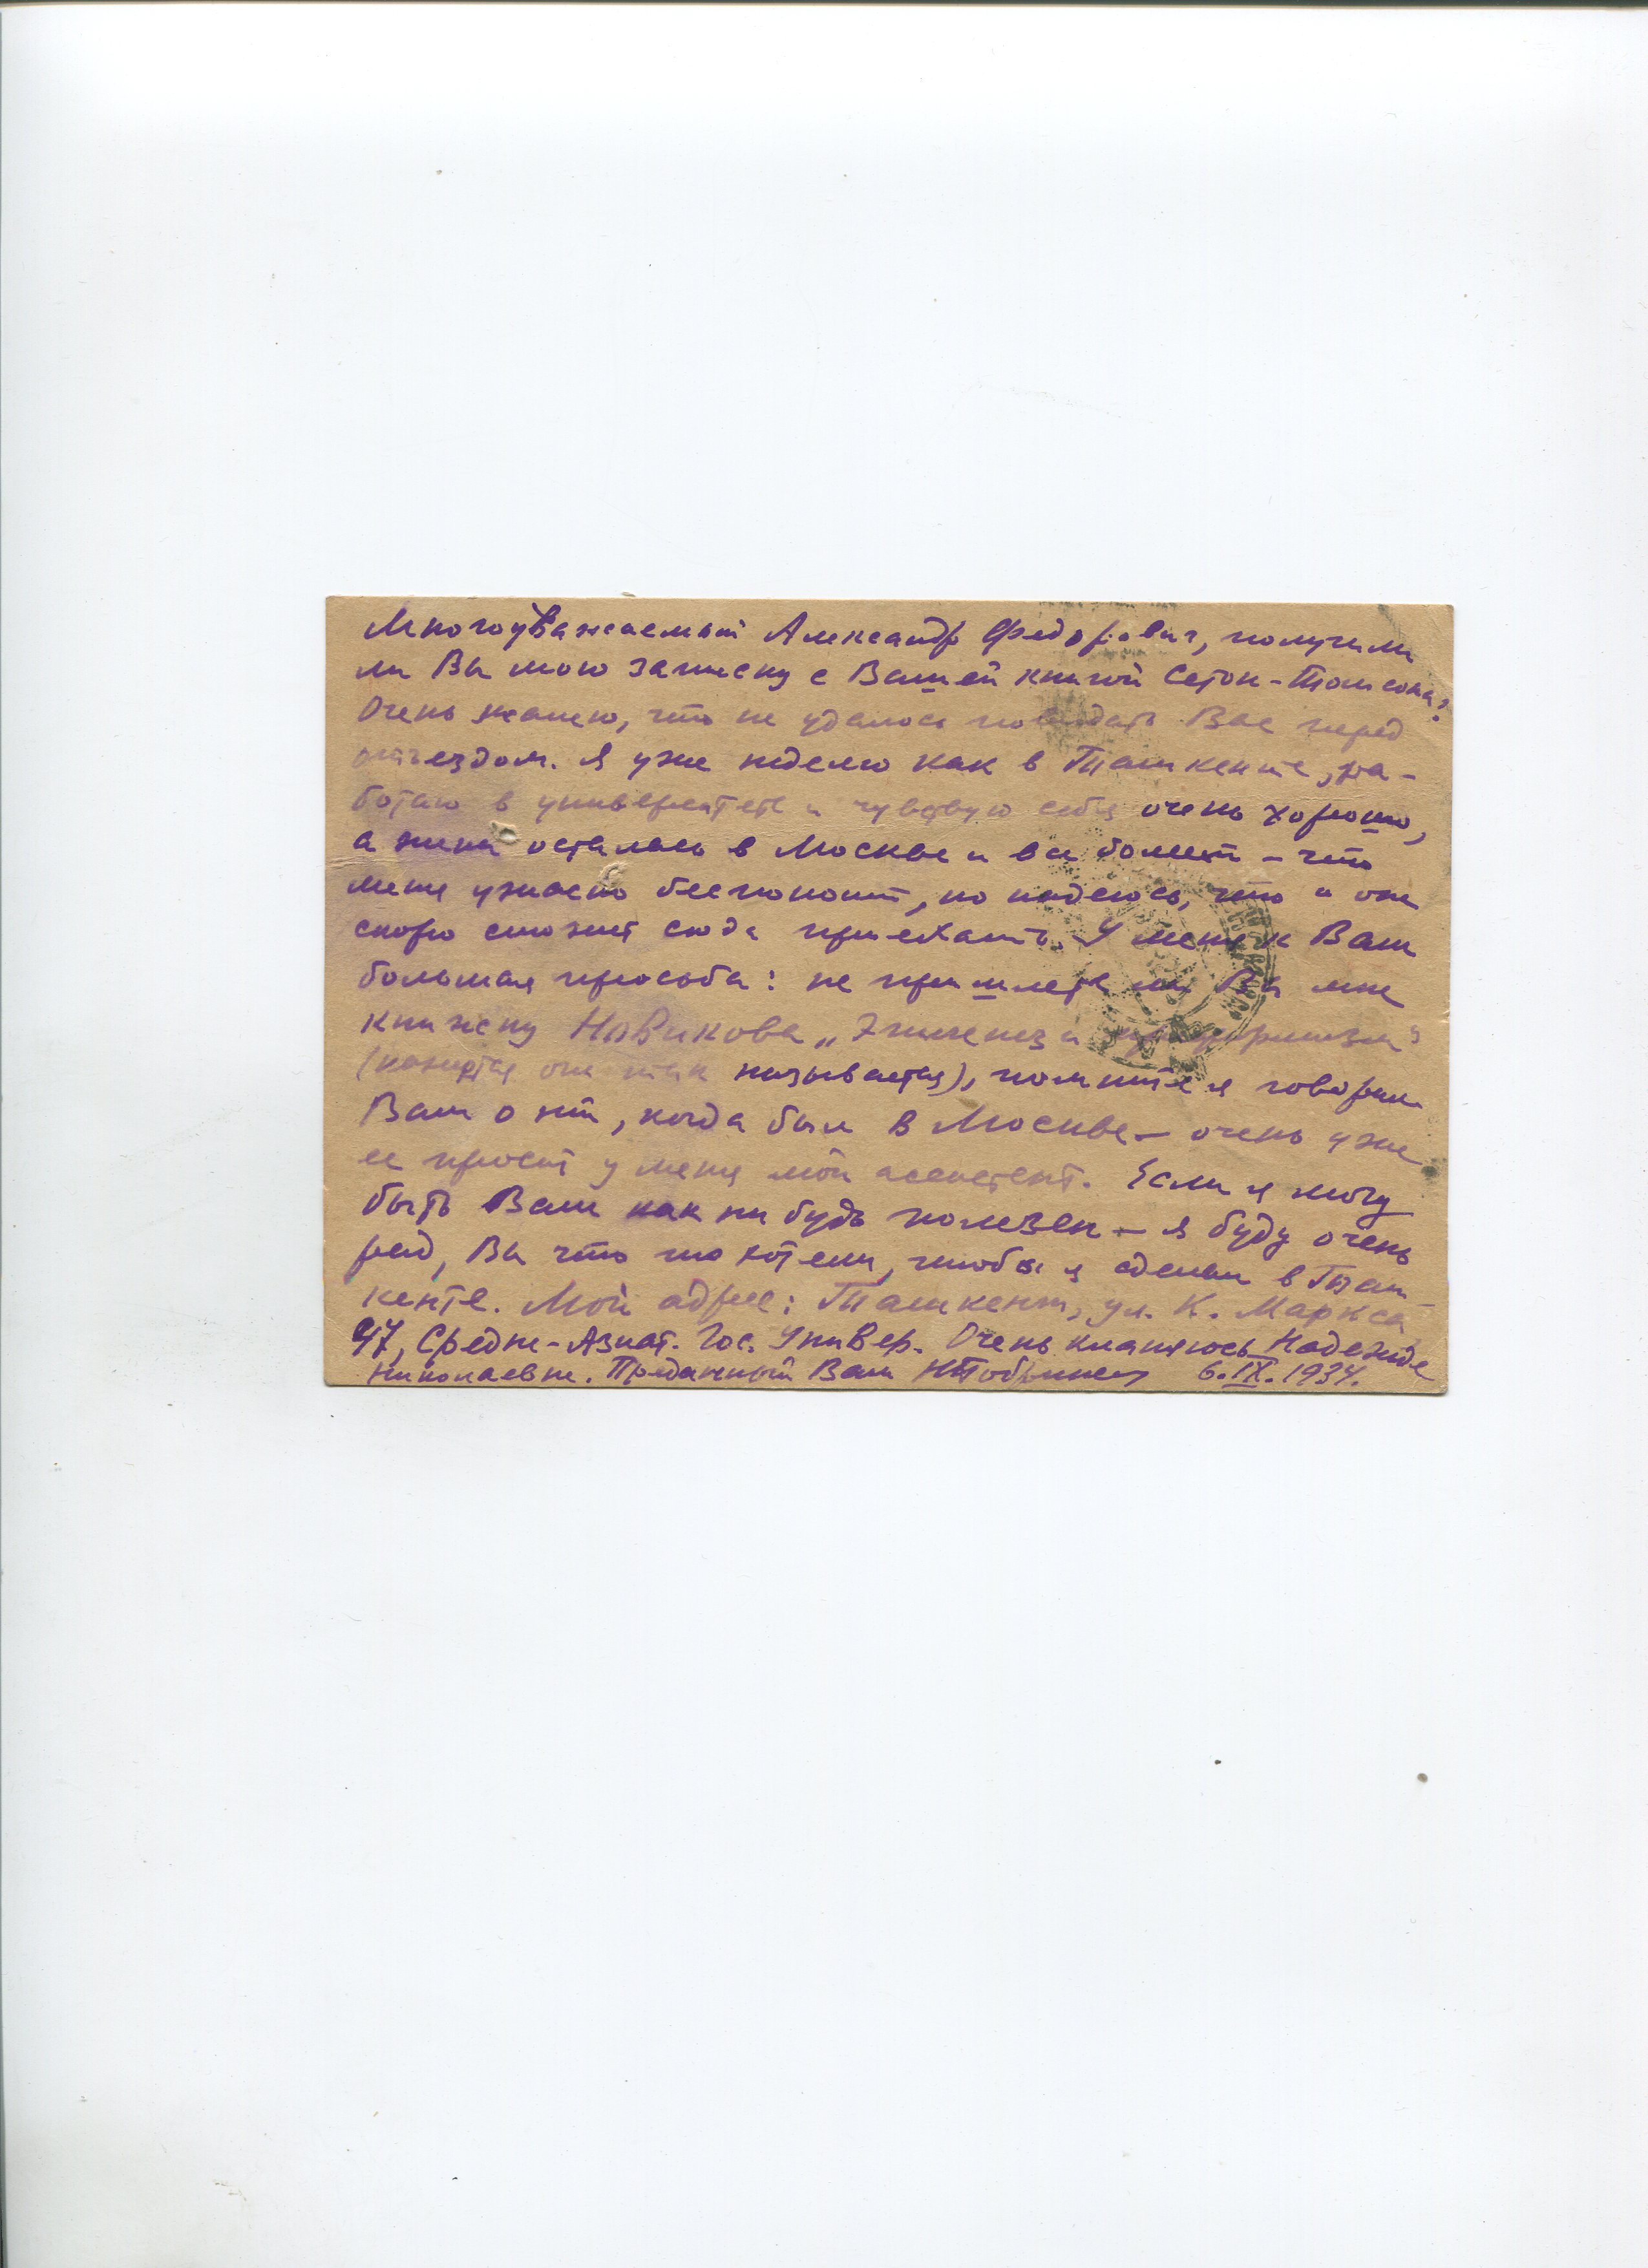 Многоуважаемый Александр Федорович, получили
ли Вы мою записку с Вашей книгой Сетон-Томпсона?
Очень жалею, что не удалось повидать Вас перед
отъездом. Я уже неделю как в Ташкенте, ра-
ботаю в университете и чувствую себя очень хорошо,
а жена осталась в Москве и все болеет – что
меня ужасно беспокоит, но надеюсь, что и она
скоро сможет сюда приехать. У меня к Вам
большая просьба: не пришлете ли Вы мне
книжку Новикова „ и
(кажется она так называется), помните я говорил
Вам о ней, когда был в Москве – очень уже
ее просит у меня мой ассистент. Если я могу
быть Вам как ни будь полезен – я буду очень
рад, Вы что то хотели, чтобы я сделал в Таш
кенте. Мой адрес: Ташкент, ул. К. Маркса
47, Средне-Азиат. Гос. Универ. Очень кланяюсь Надежде
Николаевне. Преданный Вам 6.IX.1934.